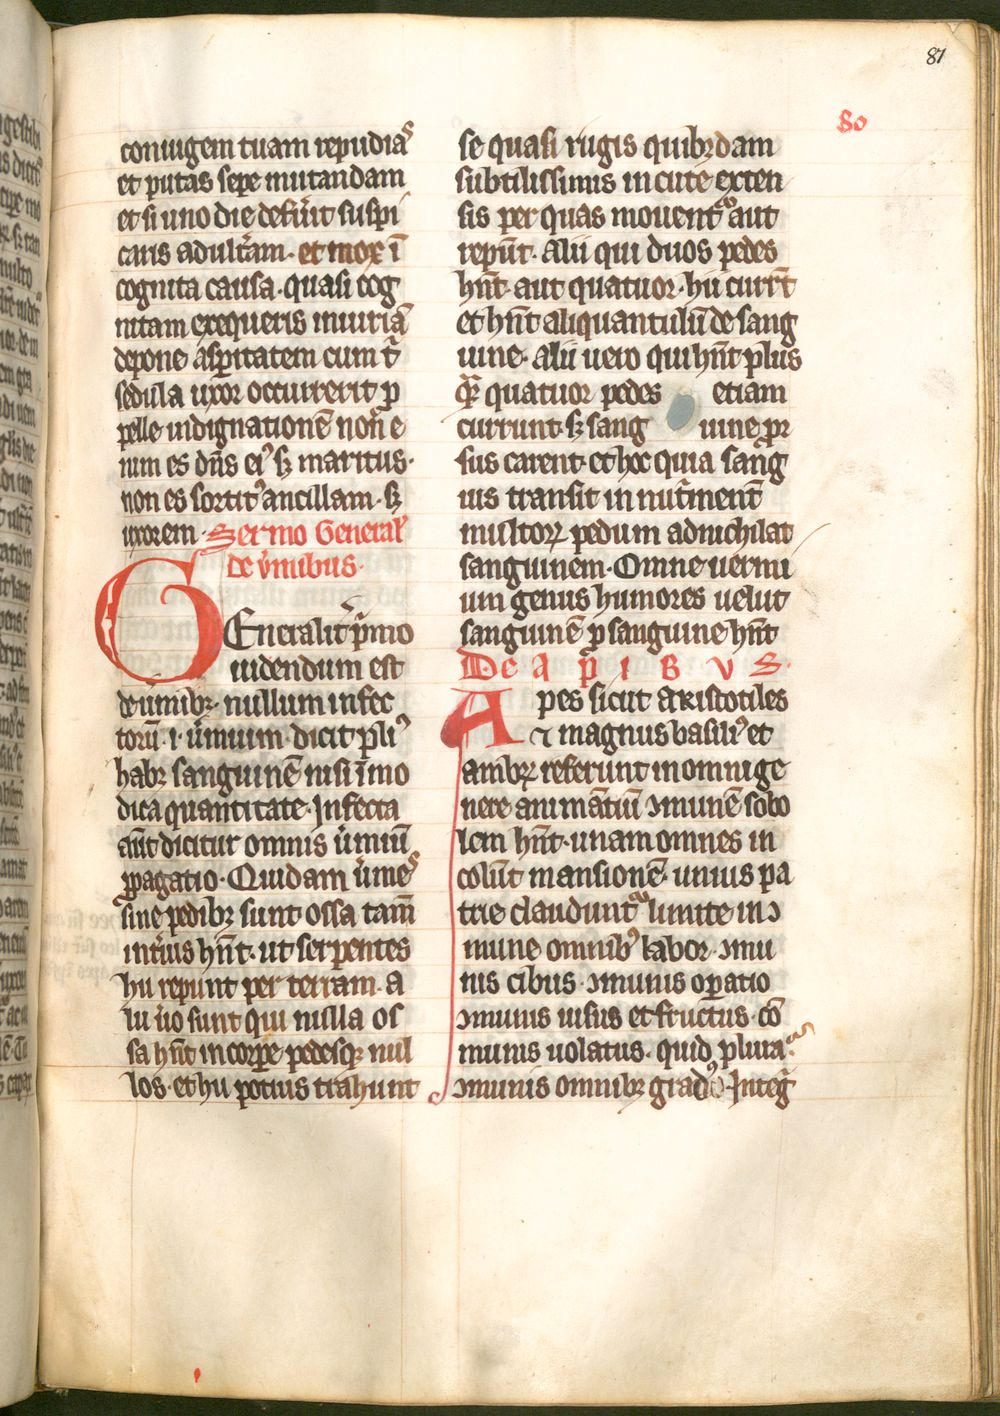 87
80
coniugem tuam repudiaˢ
et putas sepe mutandam
et si uno die defuͥit suspi
caris adult̃am. et mox ī
cognita causa. quasi cog
nitam exequeris iniuriā
depone asꝑitatem cum t̄
sedula uxor occurrerit ꝓ
pelle indignationē non̄ e
nim es dn̄s eiꝰ sꝫ maritus.
non es sortitꝰ ancillam. sꝫ
uxorem. Sermo General̕
de v̓mibus.
GEnͣalit̓ p̓mo
uidendum est
de u̓mibꝫ. nullum infec
torū .i. u̓mium. dicit pliꝰ
habꝫ sanguinē nisi īmo
dica quantitate. Infecta
aūt dicitur omnis u̓miū
ꝓpagatio. Quidam u̓meˢ
sine pedibꝫ sunt ossa tam̄
int̓ius hn̄t. ut serpentes
hii repunt per terram. a
lii u̓o sunt qui nulla os
sa hn̄t in corꝑe pedesqꝫ nul
los. et hii potius trahunt
se quasi rugis quibꝫdam
subtilissimis in cute exten
sis per quas mouentᷣ aut
repūt. Alii qui duos pedes
hn̄t. aut quatuor. hii curr̄t
et hn̄t aliquantulū de sang
uine. Alii uero qui hn̄t plus
quatuor pedes etiam
currunt. sꝫ sang uine ꝓr
sus carent. et hoc quia sang
uis transit in nut̓ment̄
multoꝝ pedum adnichilat
sanguinem. Omne uermi
um genus humores uelut
sanguinē ꝓ sanguine hn̄t
De apibvs.
Apes sicut aristotiles
⁊ magnus basiliꝰ et
ambꝝ referunt in omni ge
nere animātiū ꝯmunē sobo
lem hn̄t. unam omnes in
colūt mansionē. unius pa
trie claudunt᷑ limite in ꝯ
mune omnibꝰ labor. ꝯmu
nis cibus. ꝯmunis oꝑatio
ꝯmunis usus et fructus. cō
munis uolatus. quid plura.
ꝯmunis omnibꝫ gradꝰ. Integͣ